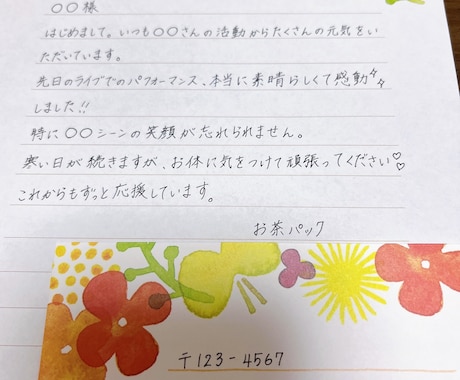 ○○様
はじめまして。いつも○○さんの活動からたくさんの元気をい
ただいています。
先日のライブでのパフォーマンス、本当に素晴らしくて感動
しました!!
特に○○シーンの笑顔が忘れられません。
寒い日が続きますが、お体に気をつけて頑張ってください♡♡
これからもずっと応援しています。
お茶パック
〒123-4567